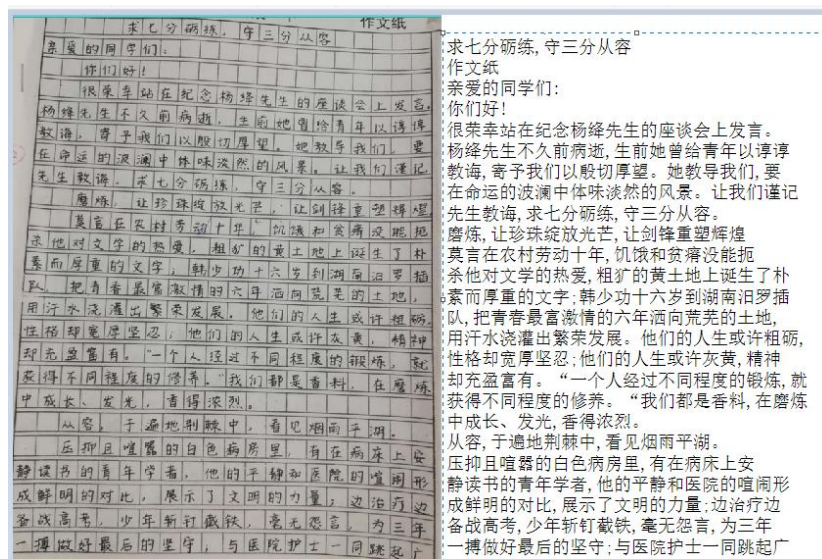 作文纸
求七分砺练，守三分从容
亲爱的同学们：
你们好！
很荣幸站在纪念杨绛先生的座谈会上发言。
杨绛先生不久前病逝，生前她曾给青年以谆谆
教诲，寄予我们以殷切厚望。她教导我们，要
在命运的波澜中体味淡然的风景。让我们谨记
先生教诲，求七分砺练，守三分从容。
磨炼，让珍珠绽放光芒，让剑锋重塑辉煌
莫言在农村劳动十年，饥饿和贫瘠没能扼
杀他对文学的热爱，粗犷的黄土地上诞生了朴
素而厚重的文字；韩少功十六岁到湖南汨罗插
队，把青春最富激情的六年洒向荒芜的土地，
用汗水浇灌出繁荣发展。他们的人生或许粗砺，
性格却宽厚坚忍；他们的人生或许灰黄，精神
却充盈富有。“一个人经过不同程度的锻炼，就
获得不同程度的修养。”我们都是香料，在磨炼
中成长、发光，香得浓烈。
从容，于遍地荆棘中，看见烟雨平湖。
压抑且喧嚣的白色病房里，有在病床上安
静读书的青年学者，他的平静和医院的喧闹形
成鲜明的对比，展示了文明的力量；边治疗边
备战高考，少年斩钉截铁，毫无怨言，为三年
一搏做好最后的坚守；与医院护士一同跳起广
求七分砺练,守三分从容
作文纸
亲爱的同学们:
你们好!
很荣幸站在纪念杨绛先生的座谈会上发言。
杨绛先生不久前病逝,生前她曾给青年以谆谆
教诲,寄予我们以殷切厚望。她教导我们,要
在命运的波澜中体味淡然的风景。让我们谨记
先生教诲,求七分砺练,守三分从容。
磨炼,让珍珠绽放光芒,让剑锋重塑辉煌
莫言在农村劳动十年,饥饿和贫瘠没能扼
杀他对文学的热爱,粗犷的黄土地上诞生了朴
素而厚重的文字;韩少功十六岁到湖南汨罗插
队,把青春最富激情的六年洒向荒芜的土地,
用汗水浇灌出繁荣发展。他们的人生或许粗砺,
性格却宽厚坚忍;他们的人生或许灰黄,精神
却充盈富有。“一个人经过不同程度的锻炼,就
获得不同程度的修养。“我们都是香料,在磨炼
中成长、发光,香得浓烈。
从容,于遍地荆棘中,看见烟雨平湖。
压抑且喧嚣的白色病房里,有在病床上安
静读书的青年学者,他的平静和医院的喧闹形
成鲜明的对比,展示了文明的力量:边治疗边
备战高考,少年斩钉截铁,毫无怨言,为三年
一搏做好最后的坚守;与医院护士一同跳起广